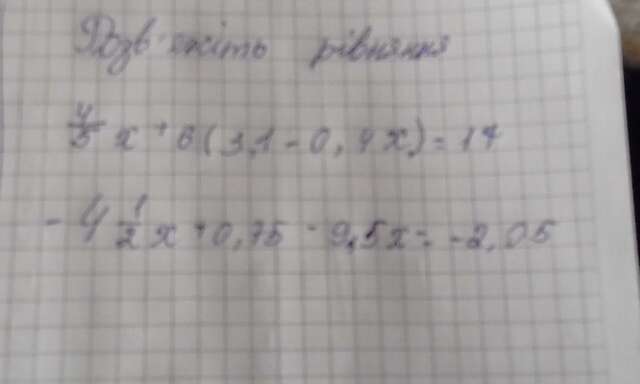 Розв'яжіть рівняння
4/5 x + 6(3,1 - 0,4x) = 17
-4 1/2 x + 0,75 - 9,5x = -2,05